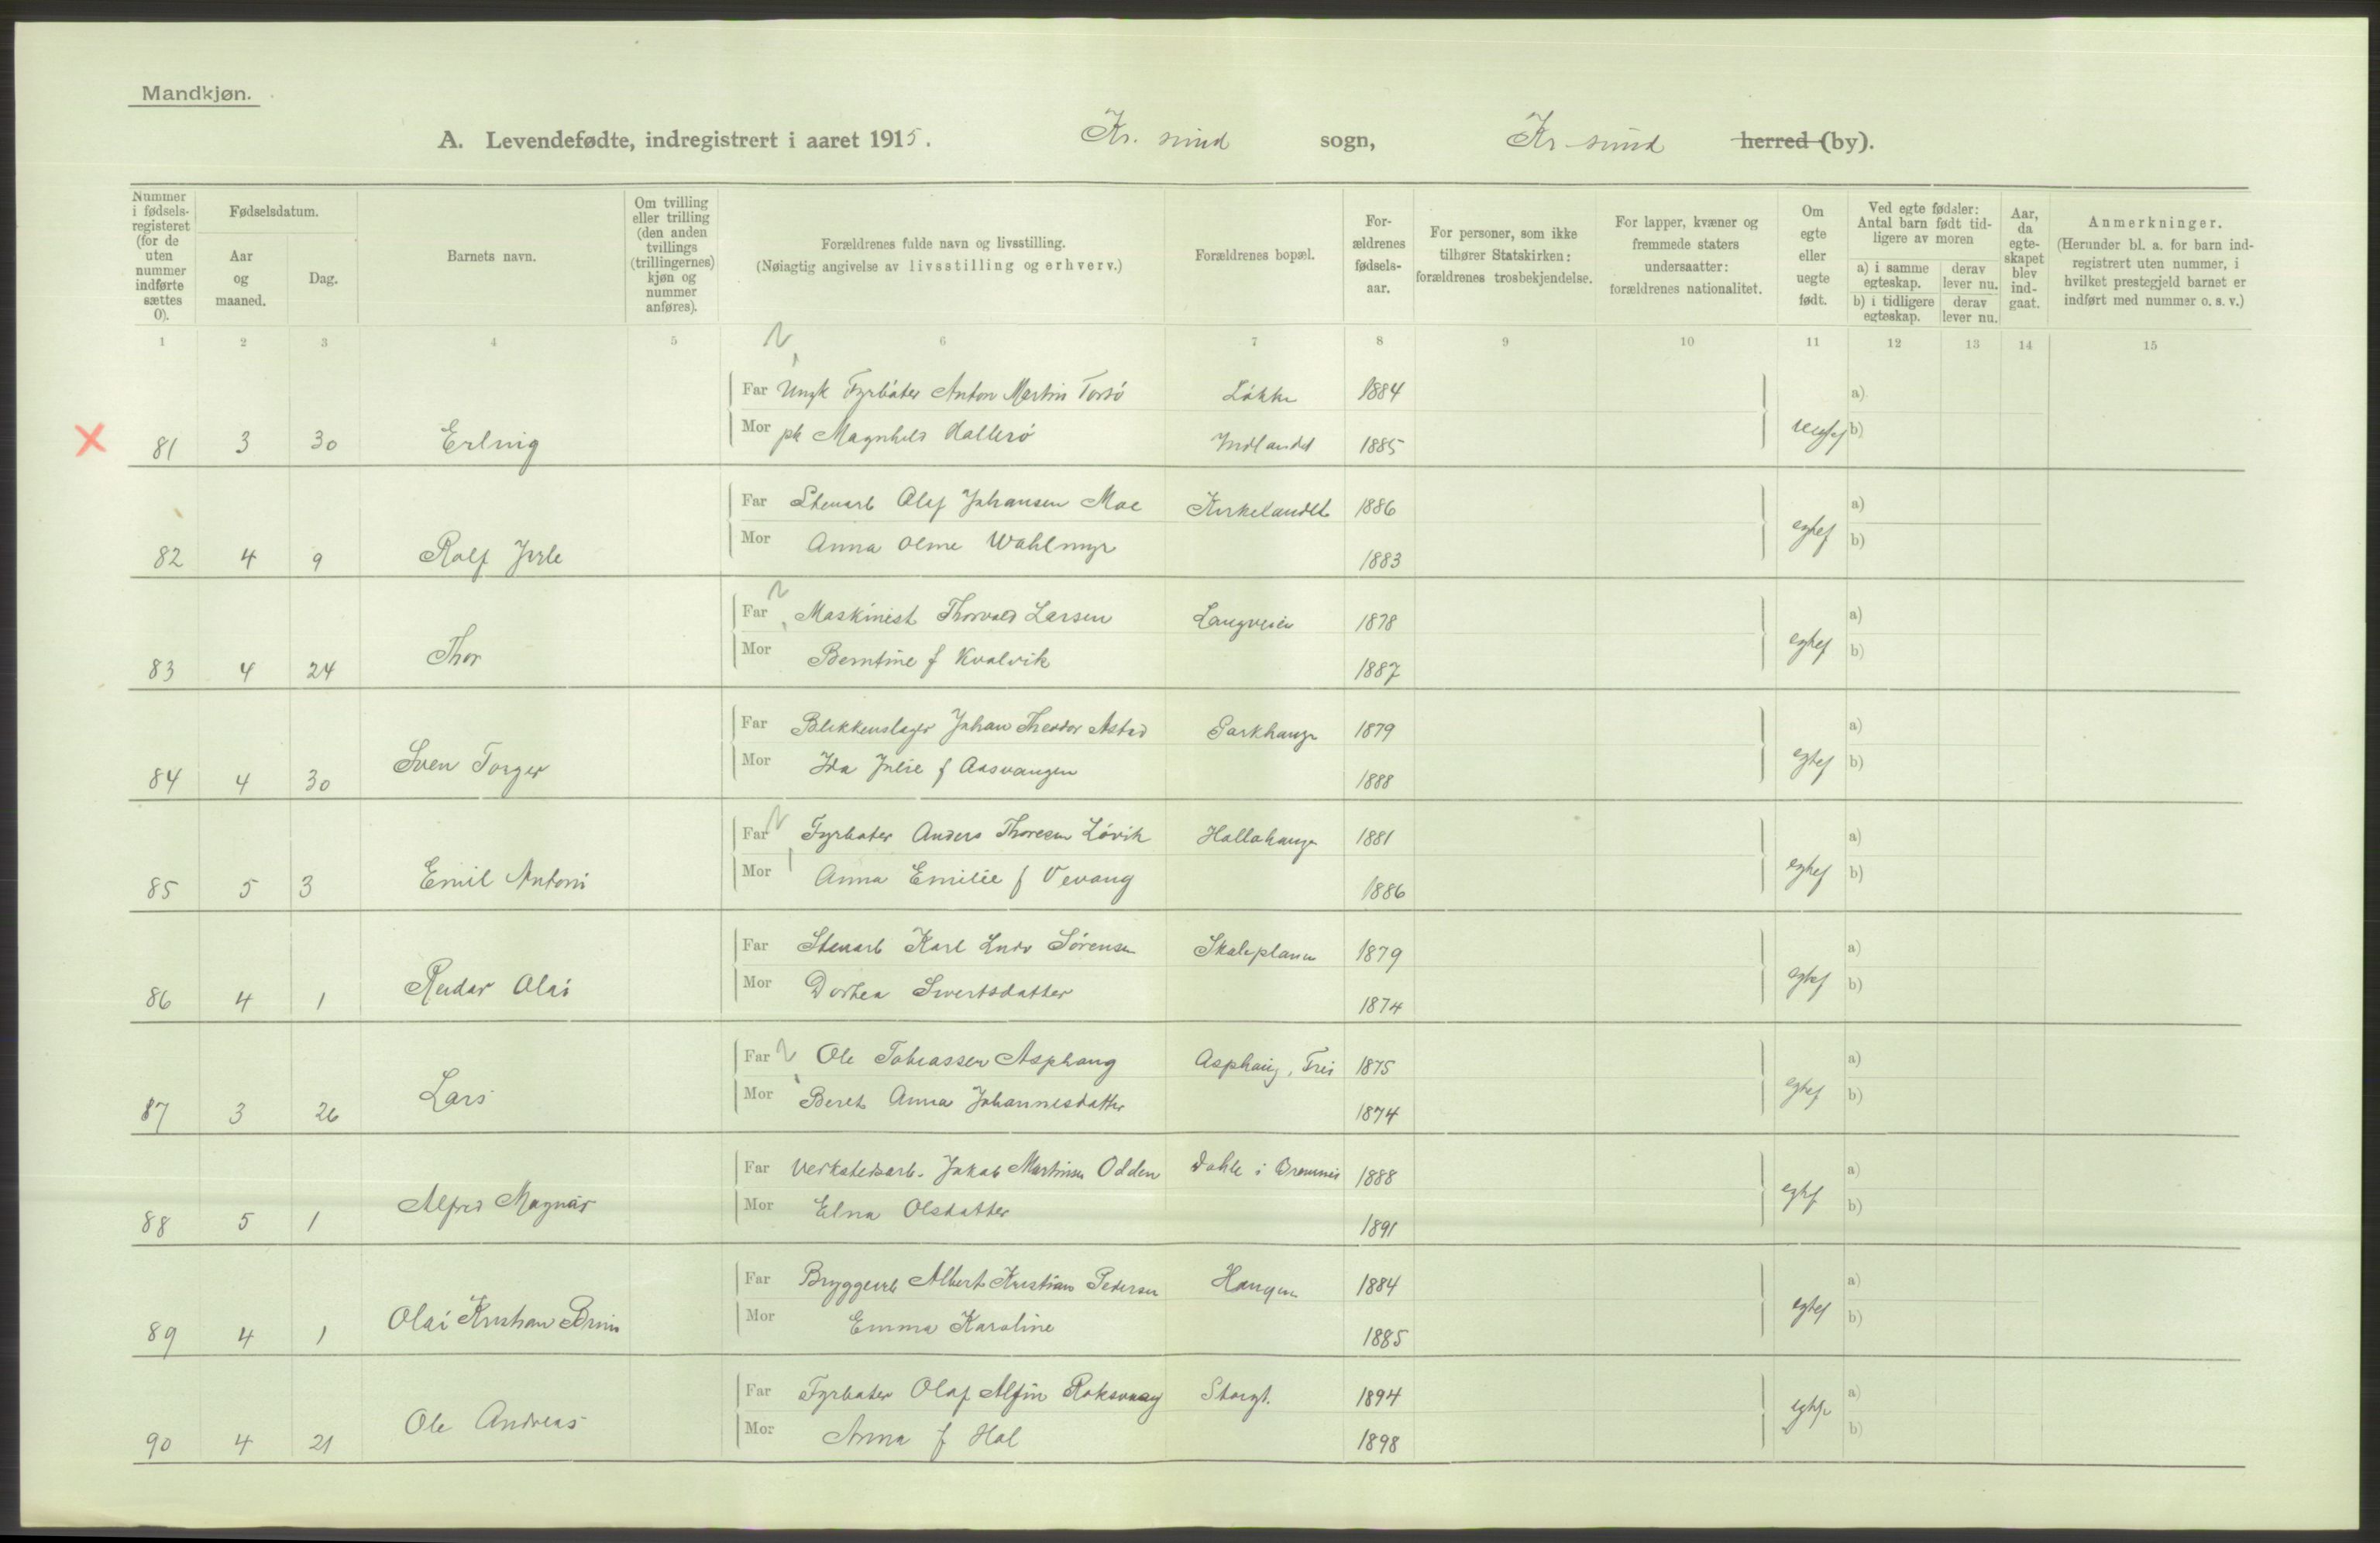 Mandkjøn.
A. Levendefødte, indregistrert i aaret 1915. Kr. sund sogn, Kr sund herred (by).
Nummer i fødsels-registeret (for de uten nummer indførte sættes 0).
Fødselsdatum.
Aar og maaned.
Dag.
Barnets navn.
Om tvilling eller trilling (den anden tvillings (trillingernes) kjøn og nummer anføres).
Forældrenes fulde navn og livsstilling.
(Nøiagtig angivelse av livsstilling og erhverv.)
Forældrenes bopæl.
For-ældrenes fødsels-aar.
For personer, som ikke tilhører Statskirken: forældrenes trosbekjendelse.
For lapper, kvæner og fremmede staters undersaatter: forældrenes nationalitet.
Om egte eller uegte født.
Ved egte fødsler: Antal barn født tid-ligere av moren
a) i samme egteskap.
derav lever nu.
b) i tidligere egteskap.
derav lever nu.
Aar, da egte-skapet blev ind-gaat.
Anmerkninger.
(Herunder bl. a. for barn ind-registrert uten nummer, i hvilket prestegjeld barnet er indført med nummer o. s. v.)
1 2 3 4 5 6 7 8 9 10 11 12 13 14 15
Far Ungk Fyrbøter Anton Martin Torsø Løkke 1884 a)
81 3 30 Erling Mor pk Magnhild Hallerø Indlandet 1885 uegte b)
Far Stuearb Olaf Johansen Moe Kirkelandet 1886 a)
82 4 9 Rolf Mor Anna Oline 1883 egtef b)
Far Maskinist Thorvald Larsen Langveien 1878 a)
83 4 24 Thor Mor Berntine f Kvalvik 1887 egtef b)
Far Blikkenslager Johan Theodor 1879 a)
84 4 30 Sven Torger Mor Ida Julie f Aasvangen 1888 egtef b)
Far Fyrbøter Anders Thoresen Løvik 1881 a)
85 5 3 Emil Antoni Mor Anna Emilie f Vevang 1886 egtef b)
Far Karl Ludv Sørensen 1879 a)
86 4 1 Reidar Olai Mor Dorthea Sivertsdatter 1874 egtef b)
Far Ole Tobiassen Asphaug Asphaug, Frei 1875 a)
87 3 26 Lars Mor Beret Anna Johannesdatter 1874 egtef b)
Far Verkstedsarb. Jakob Martinsen Odden Dahle i Bremnes 1888 a)
88 5 1 Alfred Magnar Mor Elna Olsdatter 1891 egtf b)
Far Bryggearb Albert Kristian Pedersen Haugen 1884 a)
89 4 1 Olai Kristian Mor Emma Karoline 1885 egtef b)
Far Fyrbøter Olaf Alfin Roksvaag Storgt. 1894 a)
90 4 21 Ole Andreas Mor Anna f Hol 1898 egtf b)